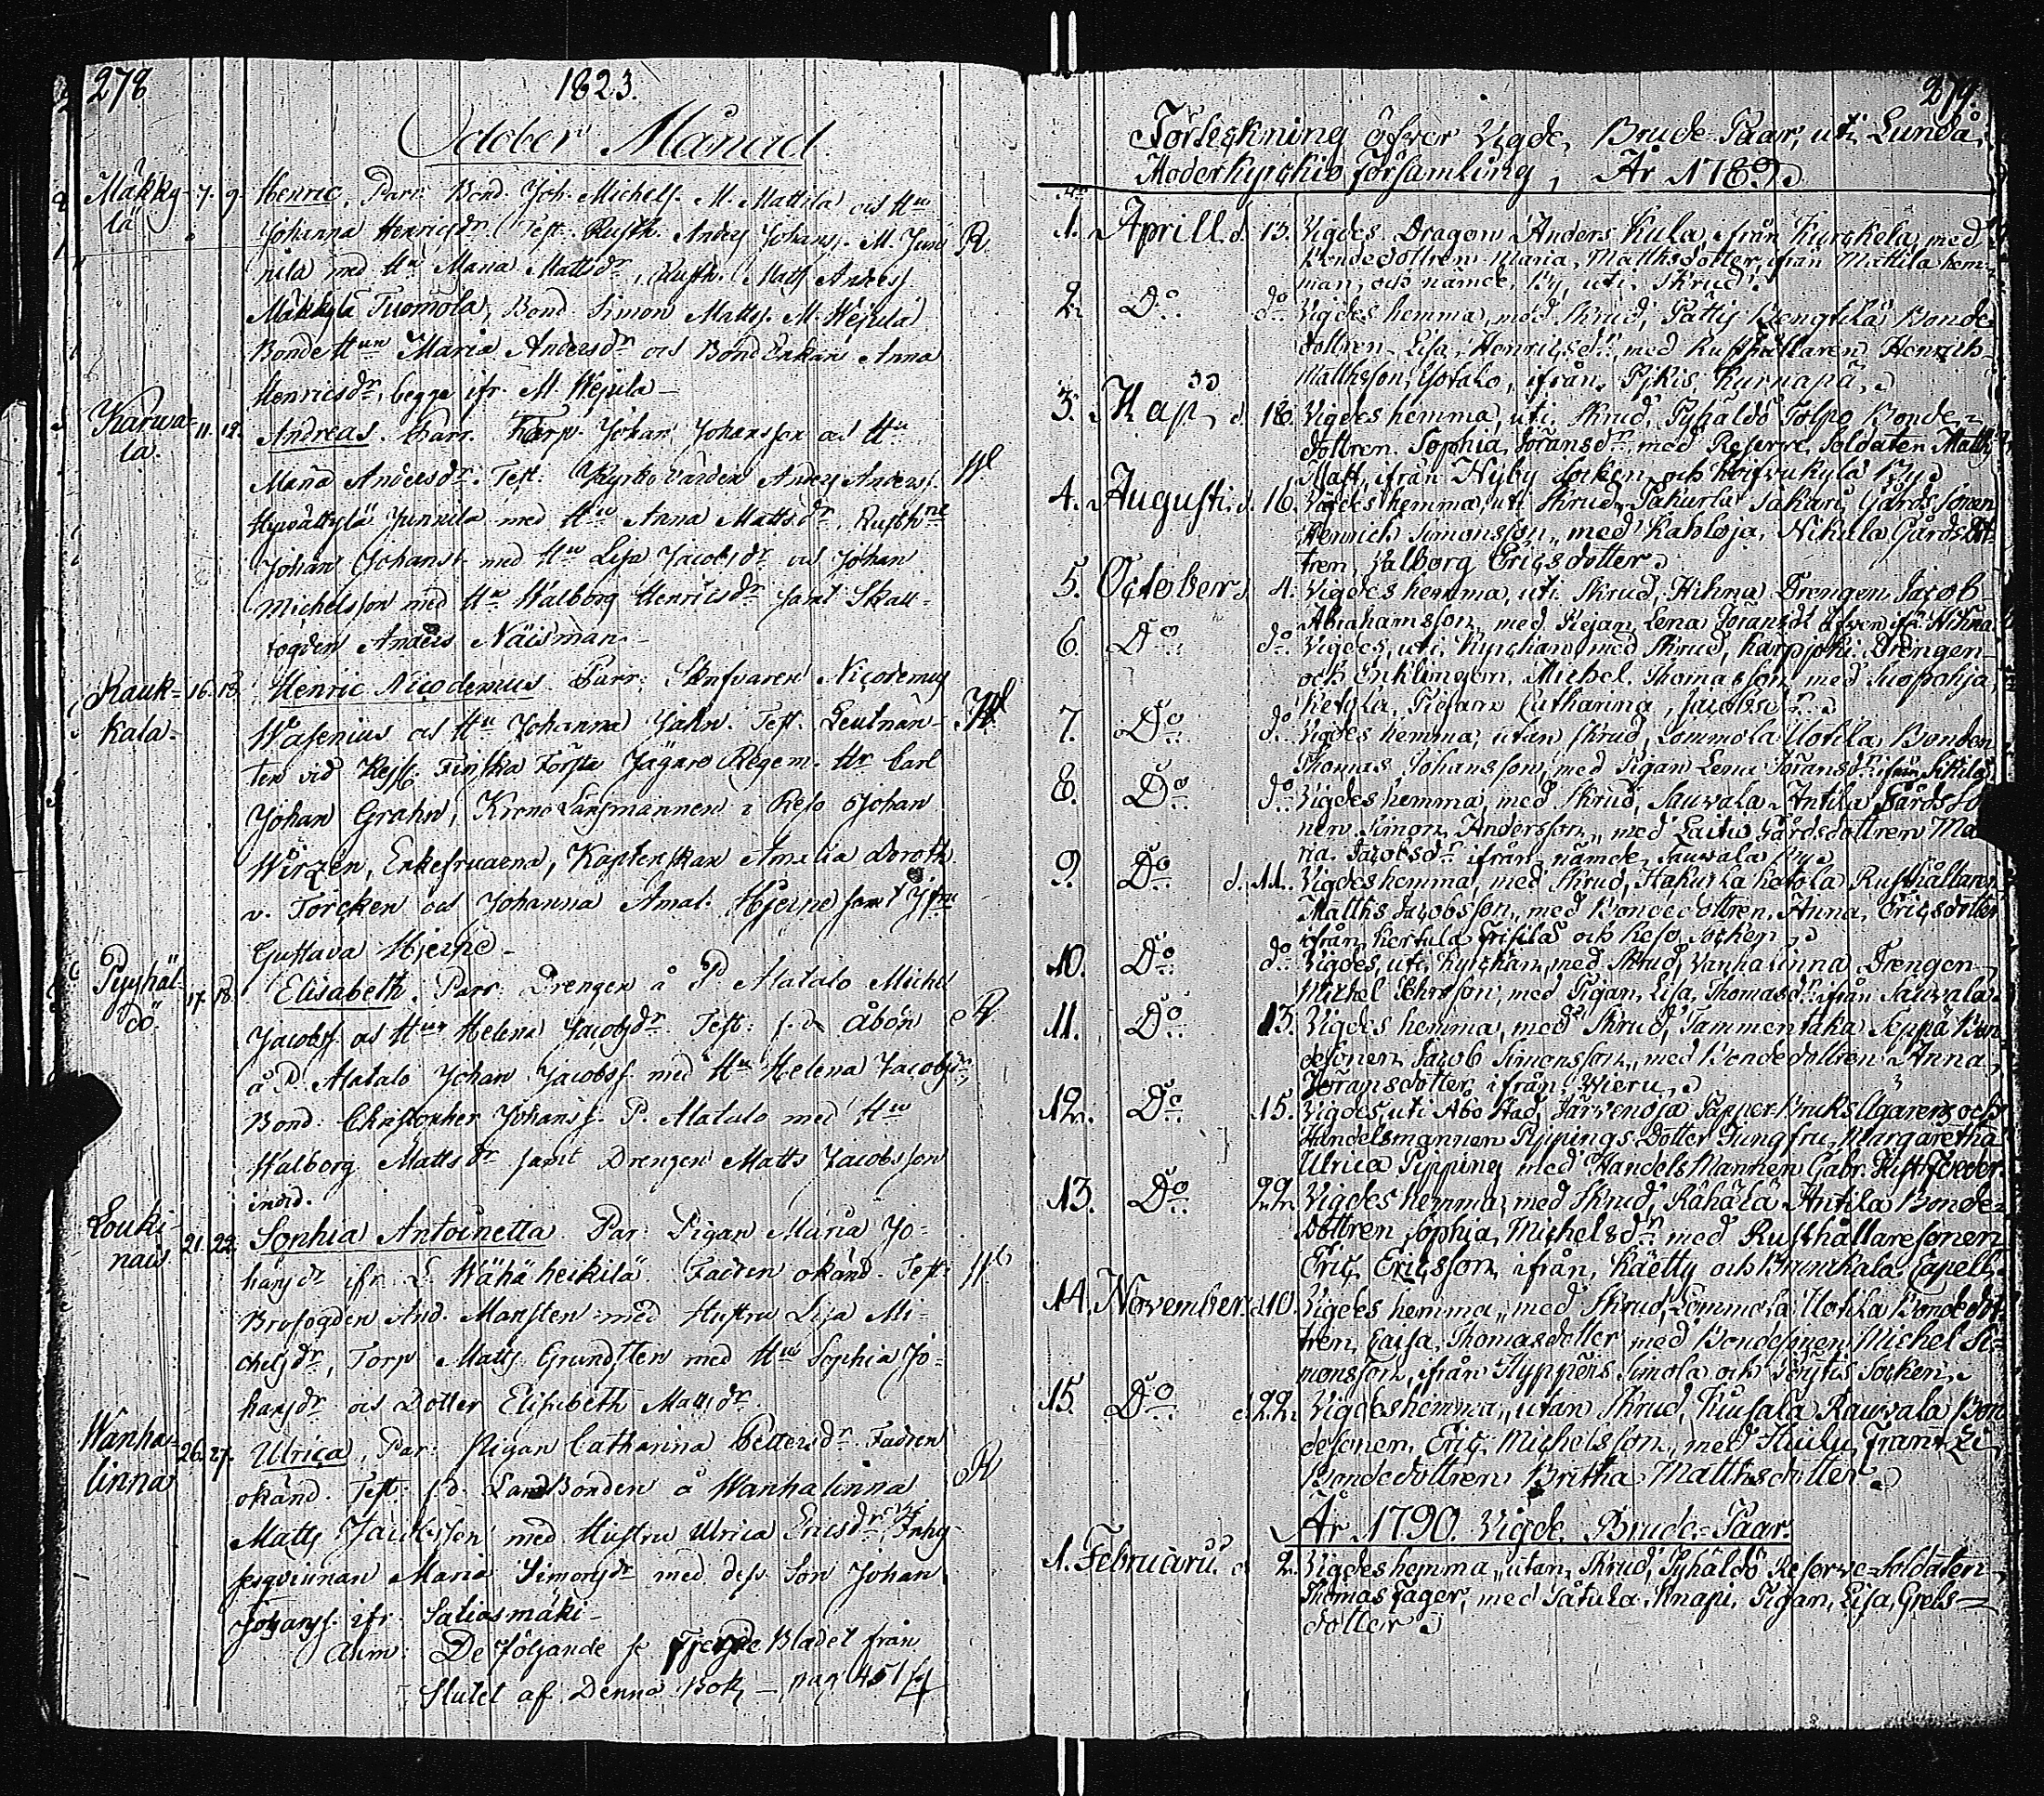 278
1823.
October Månad.
Mäkky-
lä
7. 9.
Henric, Parr. Bond. Joh. Michelss. M. Mattila och Hu
Johanna Henricsdr. Test. Rusth. Anders Johanss. M. Juni
R.
nila med Hu Maria Mattsdr, Rusth. Matts Anderss.
Mäkkylä Tuomola, Bond Simon Mattss. M. Hejula
Bonde Hun Maria Andersdr och Bond Enkan Anna
Henricsdr, begge ifr. M. Hejula
Karwa-
la.
11. 12.
Andreas. Parr. Torp. Johan Johansson och Hu
Maria Andersdr. Test: Kyrko Värden Anders Anderss.
Hyvättylä Junnila med Hu Anna Mattsdr, Rusth.ne
Johan Johanss. med Hu Lisa Jacobsdr och Johan
Michelsson med Hu Walborg Henricsdr samt Skall-
fogden Anders Näisman
Rauk-
kala
16. 18.
Henric Nicodemus. Parr: Skrifvaren Nicodemus
Wasenius och Hu Johanna Jahn. Test. Leutnan-
ten vid Kejs. Finska Första Jägare Regem. Hr Carl
Johan Grahn, Krono Länsmannen i Reso Johan
Wirzén, Enkefruarna, Kaptenskan Amalia Doroth.
v. Torcken och Johanna Amal. Hjerne samt Jfru
Gustava Hjerne
Pyhäl-
dö.
17. 18.
Elisabeth. Parr: Drengen å P. Alatalo Michel
Jacobss. och Hun Helena Jacobsdr. Test: f.d. Åbon
R
å P. Alatalo Johan Jacobss. med Hu Helena Jacobsdr,
Bond. Christopher Johanss. P. Alatalo med Hu
Walborg Mattsdr samt Drengen Matts Jacobsson
ibid.
Louki-
nais
21. 22.
Sophia Antoinetta. Par: Pigan Maria Jo-
hansdr ifr. L. Wähäheikilä. Fadren okänd. Test:
Brofogden And. Mansten med Hustru Lisa Mi-
chelsdr, Torp. Matts Grundsten med Hu Sophia Jo-
hansdr och Dotter Elisabeth Mattsdr.
Wanha-
linna
26. 27.
Ulrica, Par: Pigan Catharina Pettersdr. Fadren
okänd. Test: f.d. LandBonden å Wanhalinna
R
Matts Jacobsson med Hustru Ulrica Ericsdr, Inhy-
sesqvinnan Maria Simonsdr med dess Son Johan
Johanss. ifr. Saliosmäki
Anm: De följande se Fjerde Bladet från
Slutet af Denna Bok, pag 451
279.
Förteckning öfver Vigde Brude-Paar, uti Lundå
Moderkyrkio Församling, År 1789.
1. Aprill. d. 13. Vigdes Dragon Anders Kula ifrån Kurckela, med
Bondedottren Maria, Matthsdotter ifrån Mattila hem-
man, och nämde By, uti Skrud.
2. Do do Vigdes hemma, med Skrud, Pättis Bengtilä Bonde
dottren Lisa, Henricsdr, med Rusthållaren Henrich
Matthsson, Yötalo, ifrån Pikis Kurnapä.
3. Maji d. 18. Vigdes hemma, uti Skrud, Pyhäldö Tolpo Bonde-
dottren Sophia Jöransdr med Reserve Soldaten Matths
Matt, ifrån Nyby Socken och By.
4. Augusti d. 16. Vigdes hemma, uti Skrud, Takurla Sakari Gårds Sonen
Henrich Simonsson, med Kahloja, Nikula Gårds Dot-
tren, Valborg Ericsdotter.
5. October d. 4. Vigdes hemma, uti Skrud, Hihna Drengen Jacob
Abrahamsson, med Piejan Lena Jöransdr äfven ifr. Hihna
6. Do do Vigdes, uti Kyrckan med Skrud, Karpjoki Drengen
och Enklingen Michel Thomasson med Suopohja,
Ketyla, Piejan Catharina, Jacobsdr.
7. Do do Vigdes hemma, utan Skrud, Lommola Uotila Bonden
Thomas Johansson, med Pigan Lena Jöransdr ifrån Sikilä
8. Do do Vigdes hemma, med Skrud, Sauvala Antila Gårds So
nen Simon Andersson, med Laitio Gårdsdottren Ma
ria Jacobsdr ifrån nämde Sauvala By.
9. Do d. 11. Vigdes hemma, med Skrud, Hakurla Ketola Rusthållaren
Matths Jacobsson, med Bondedottren Anna, Ericsdotter
ifrån Kertula Frisilä och Reso Socken.
10. Do do Vigdes, uti Kyrckan, med Skrud, Vanhalinna Drengen
Michel Pehrsson, med Pigan, Lisa, Thomasdr ifrån Sauvala.
11. Do 13. Vigdes hemma, med Skrud, Tammentaka Seppä Bon
desonen Jacob Simonsson, med Bondedottren Anna,
Jöransdotter, ifrån Wieru.
12. Do 15. Vigdes, uti Åbo Stad, Järvenoja Papper-Bruks Ägarens och
Handelsmannen Pippings Dotter Jungfru Margaretha
Ulrica Pipping med Handels Mannen Gabr. Hist. Foeder.
13. Do 22. Vigdes hemma, med Skrud, Rähälä Antila Bonde-
Dottren Sophia, Michelsdr med Rusthållaresonen
Eric Ericsson, ifrån Käetty och Brunkala Capell.
14. November d. 10. Vigdes hemma, med Skrud, Lommola Uotila Bondedot
tren, Caisa, Thomasdotter med Bondesonen Michel Si-
monsson, ifrån Hyppens Simola och Pöytis Socken.
15. Do d. 22. Vigdes hemma, utan Skrud, Tuusala Rauvala Bon
desonen, Eric Michelsson, med Huilu, Frantzi,
Bondedottren Britha Matthsdotter.
År 1790. Vigde Brude-Paar.
1. Februarii. d. 2. Vigdes hemma, utan Skrud, Pyhäldö Reserve-Soldaten
Thomas Fager, med Pätula, Knapi, Pigan, Lisa, Grels-
dotter.